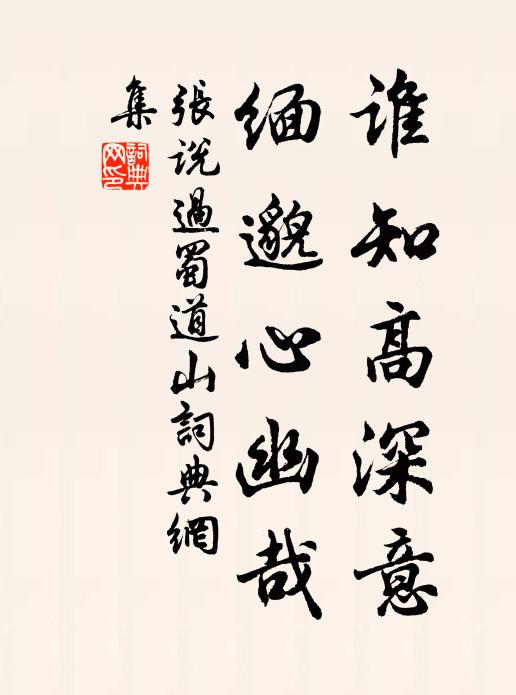 谁知高深意
緬邈心幽哉
張说過蜀道山詞典網
集
詞典
网印